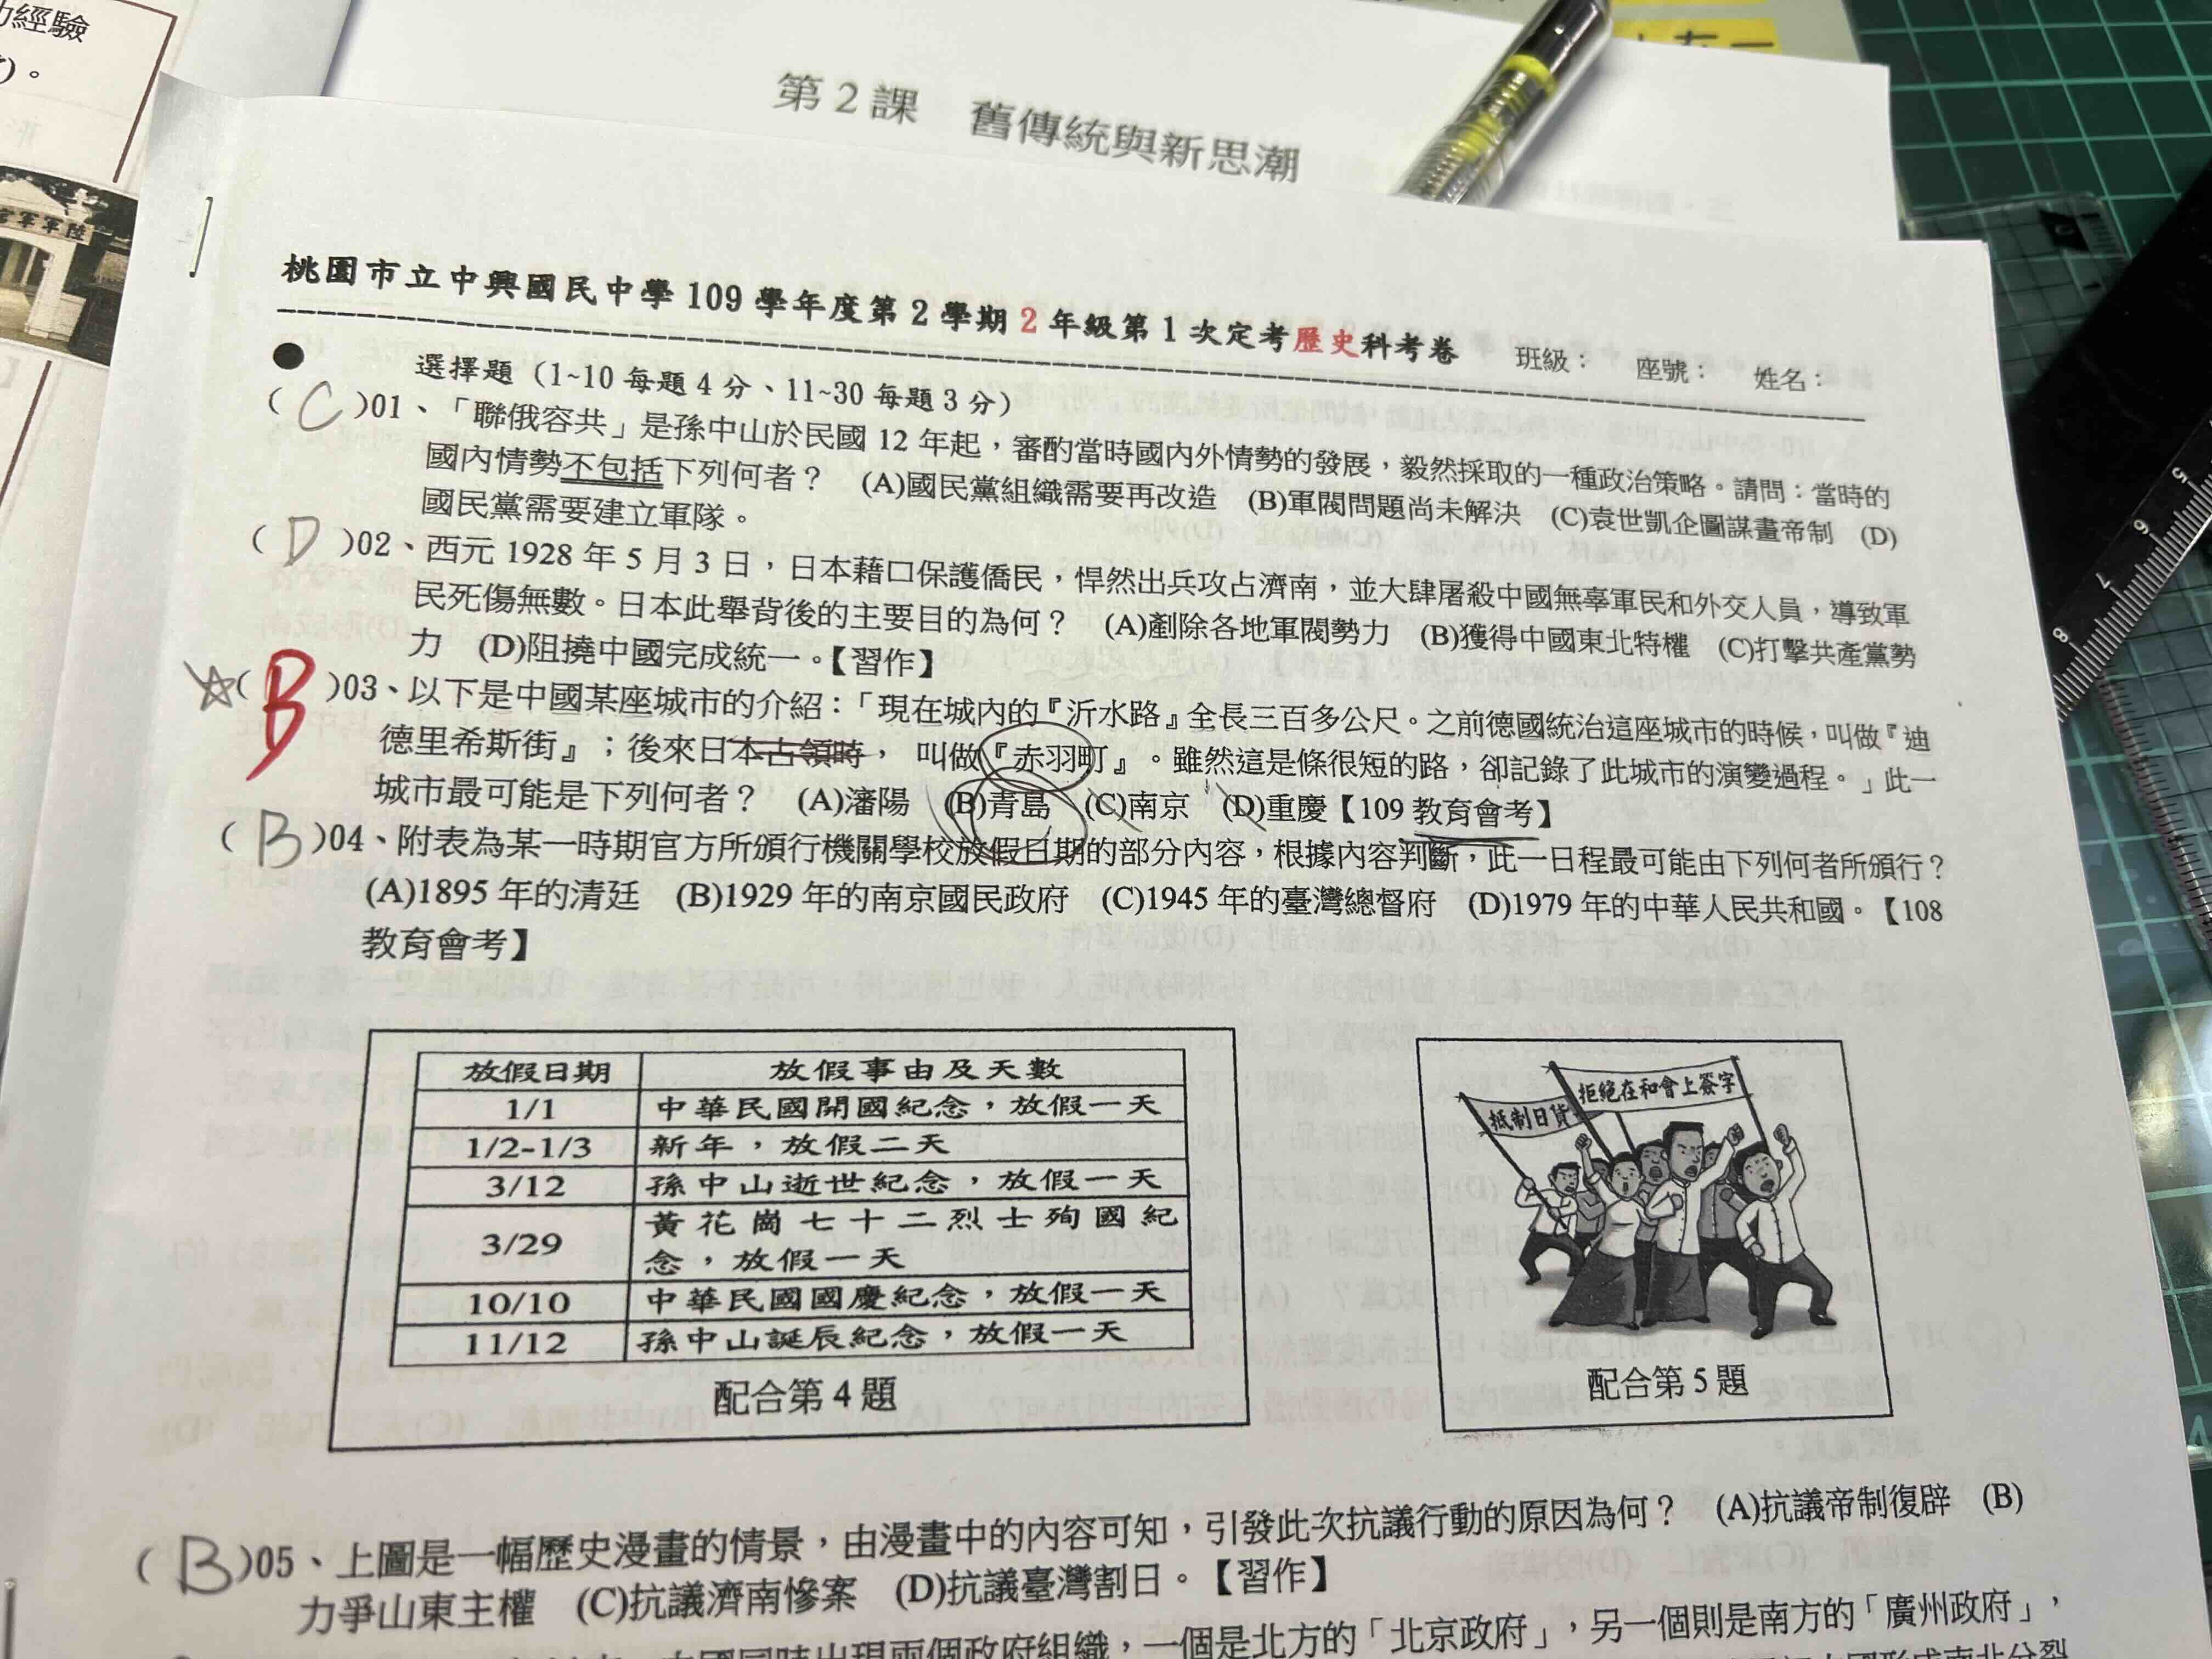 力經驗
)。
陸軍軍官
第2課 舊傳統與新思潮
桃園市立中興國民中學109學年度第2學期2年級第1次定考歷史科考卷 班級： 座號： 姓名：
選擇題（1~10每題4分、11~30每題3分）
(C)01、「聯俄容共」是孫中山於民國12年起，審酌當時國內外情勢的發展，毅然採取的一種政治策略。請問：當時的
國內情勢不包括下列何者？ (A)國民黨組織需要再改造 (B)軍閥問題尚未解決 (C)袁世凱企圖謀畫帝制 (D)
國民黨需要建立軍隊。
(D)02、西元1928年5月3日，日本藉口保護僑民，悍然出兵攻占濟南，並大肆屠殺中國無辜軍民和外交人員，導致軍
民死傷無數。日本此舉背後的主要目的為何？ (A)剷除各地軍閥勢力 (B)獲得中國東北特權 (C)打擊共產黨勢
力 (D)阻撓中國完成統一。【習作】
☆(B)03、以下是中國某座城市的介紹：「現在城內的『沂水路』全長三百多公尺。之前德國統治這座城市的時候，叫做『迪
德里希斯街』；後來日本占領時， 叫做『赤羽町』。雖然這是條很短的路，卻記錄了此城市的演變過程。」此一
城市最可能是下列何者？ (A)瀋陽 (B)青島 (C)南京 (D)重慶【109教育會考】
(B)04、附表為某一時期官方所頒行機關學校放假日期的部分內容，根據內容判斷，此一日程最可能由下列何者所頒行？
(A)1895年的清廷 (B)1929年的南京國民政府 (C)1945年的臺灣總督府 (D)1979年的中華人民共和國。【108
教育會考】
放假日期 放假事由及天數
1/1 中華民國開國紀念，放假一天
1/2-1/3 新年，放假二天
3/12 孫中山逝世紀念，放假一天
3/29 黃花崗七十二烈士殉國紀
念，放假一天
10/10 中華民國國慶紀念，放假一天
11/12 孫中山誕辰紀念，放假一天
配合第4題
抵制日貨
拒絕在和會上簽字
配合第5題
(B)05、上圖是一幅歷史漫畫的情景，由漫畫中的內容可知，引發此次抗議行動的原因為何？ (A)抗議帝制復辟 (B)
力爭山東主權 (C)抗議濟南慘案 (D)抗議臺灣割日。【習作】
中國同時出現兩個政府組織，一個是北方的「北京政府」，另一個則是南方的「廣州政府」，